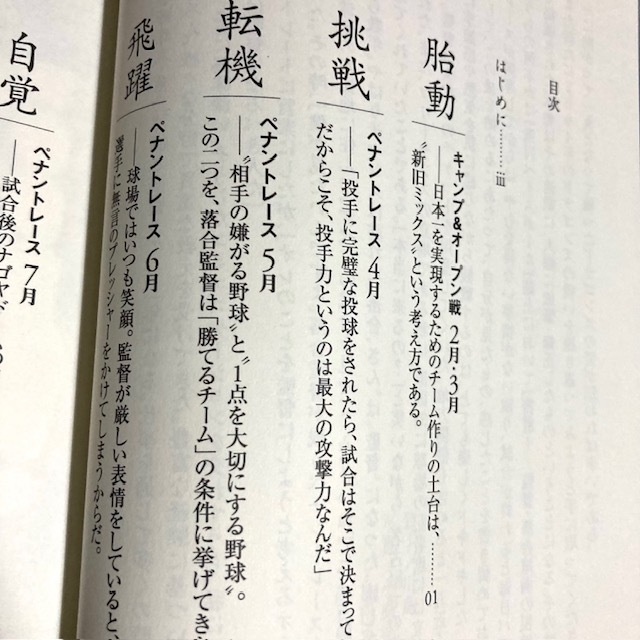 目次
はじめに………iii
胎動
キャンプ&オープン戦 2月・3月
――日本一を実現するためのチーム作りの土台は、
〝新旧ミックス〟という考え方である。………01
挑戦
ペナントレース 4月
――「投手に完璧な投球をされたら、試合はそこで決まって
だからこそ、投手力というのは最大の攻撃力なんだ」
転機
ペナントレース 5月
――〝相手の嫌がる野球〟と〝1点を大切にする野球〟。
この二つを、落合監督は「勝てるチーム」の条件に挙げてき
飛躍
ペナントレース 6月
――球場ではいつも笑顔。監督が厳しい表情をしていると
選手に無言のプレッシャーをかけてしまうからだ。
自覚
ペナントレース 7月
――試合後のナゴヤド